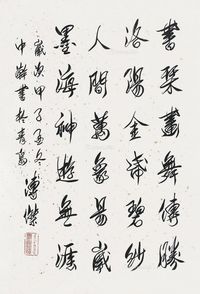 書琴畫舞傳勝
洛陽金碧紗
人間萬象易歲
墨海神遊無涯
歲次甲子孟冬
中澣書於青島
溥傑